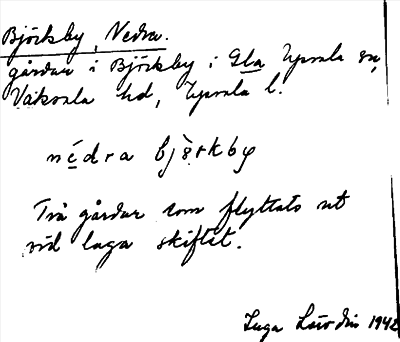 Björkby, Nedra.
gårdar i Björkby i Gla Uppsala sn,
Vaksala hd, Uppsala l.
nédra bjò̤rkby
Två gårdar som flyttats ut
vid laga skiftet.
Inga Lärdin 1942